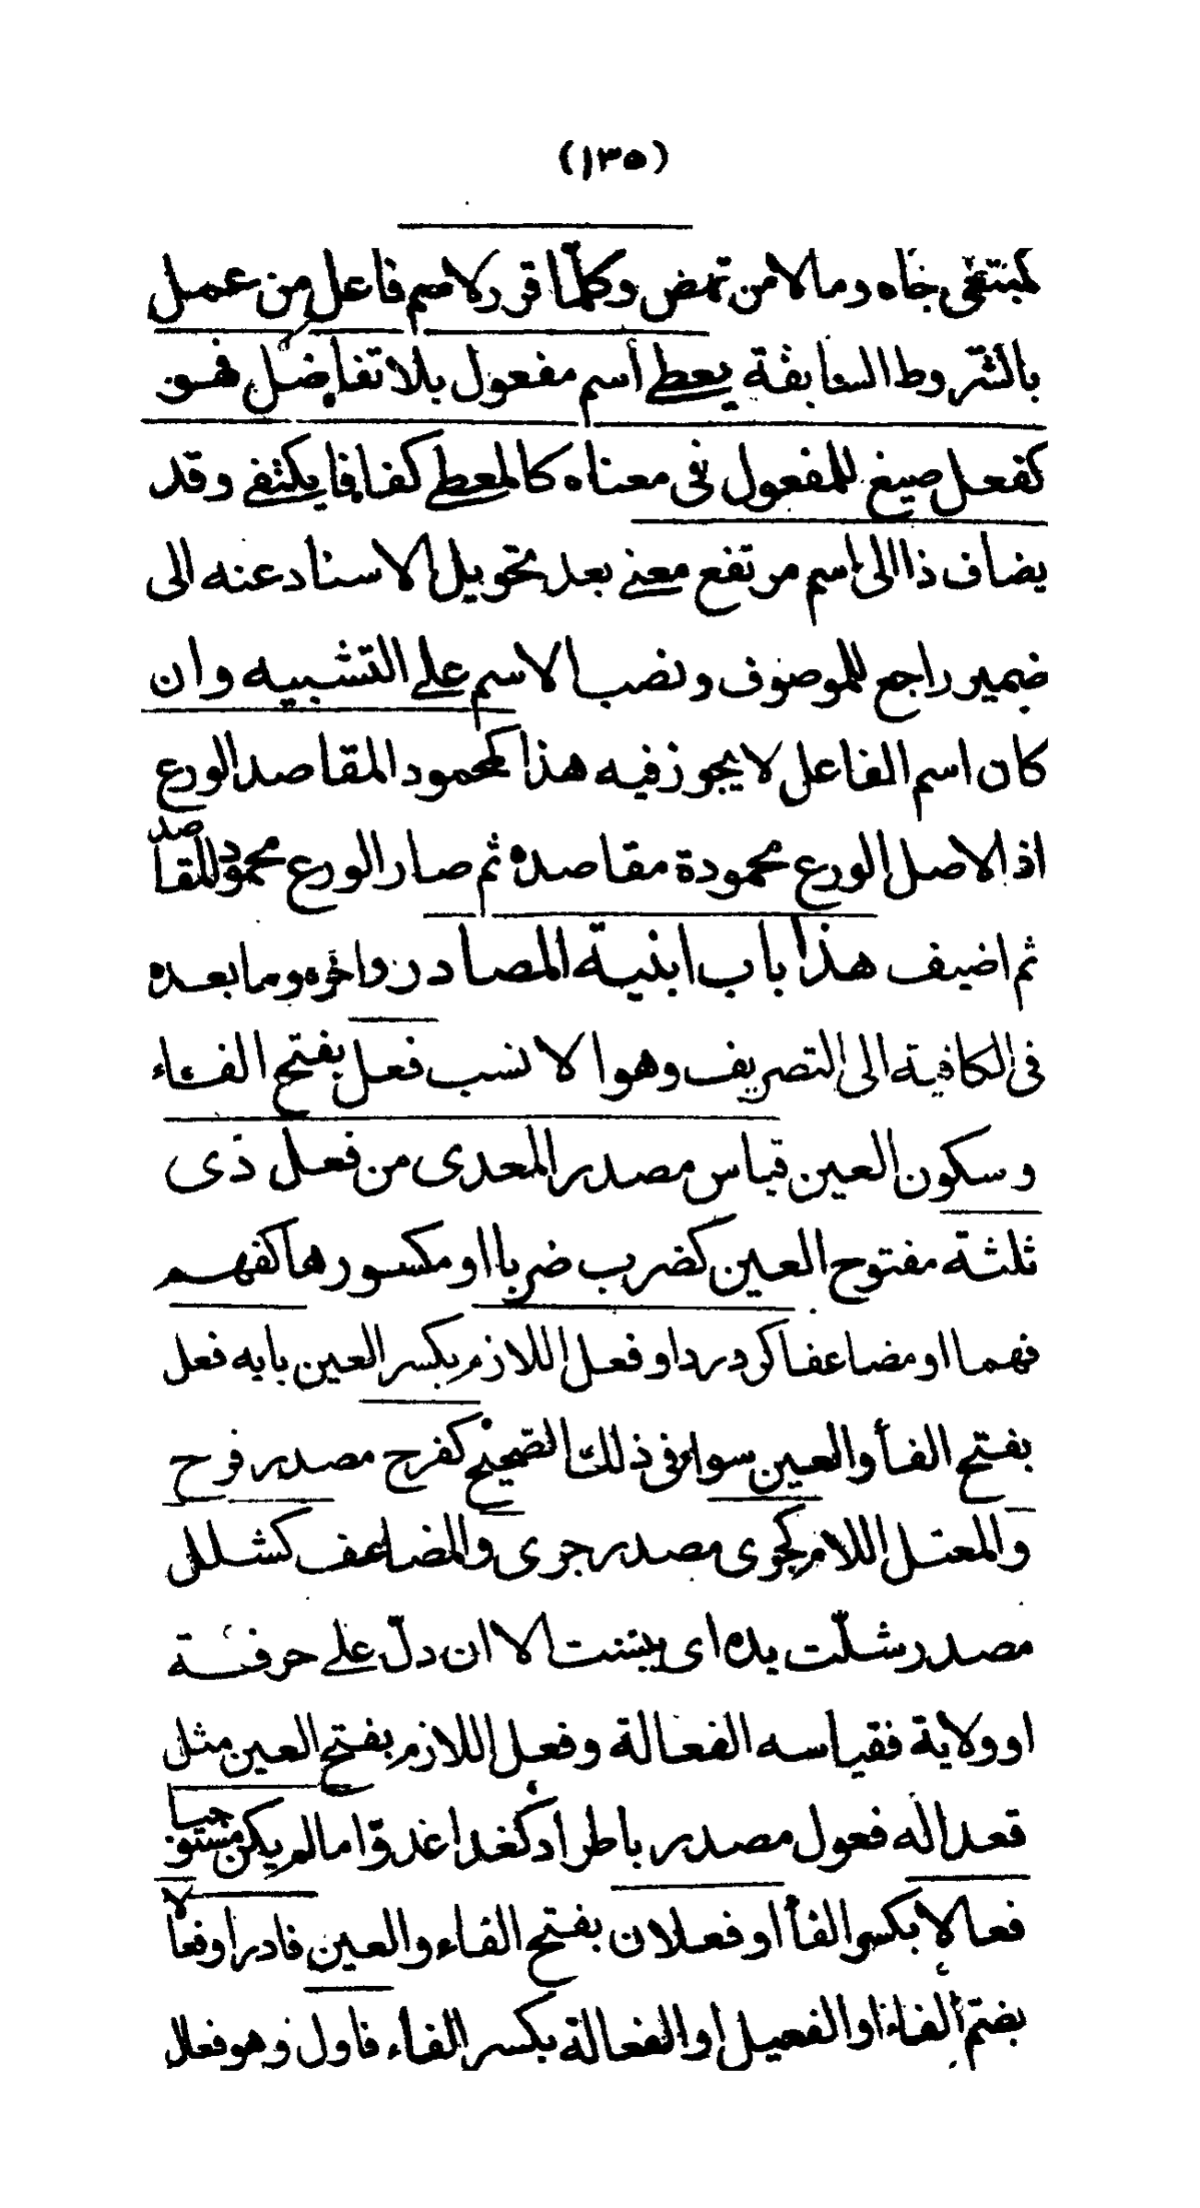 (١٣٥)
كمبتغى جاه ومالا من نهض وكلما قرر لاسم فاعل من عمل
بالشروط السابقة يعطى اسم مفعول بلا تفاضل فهو
كفعل صيغ للمفعول فى معناه كالمعطى كفافا يكتفى وقد
يضاف ذا الى اسم مرتفع معنى بعد تحويل الاسناد عنه الى
ضمير راجع للموصوف ونصب الاسم على التشبيه وان
كان اسم الفاعل لا يجوز فيه هذا كمحمود المقاصد الورع
اذ الاصل الورع محمودة مقاصده ثم صار الورع محمود المقاصد
ثم اضيف هذا باب ابنية المصادر واخره وما بعده
فى الكافية الى التصريف وهو الانسب فعل بفتح الفاء
وسكون العين قياس مصدر المعدى من فعل ذى
ثلثة مفتوح العين كضرب ضربا او مكسورها كفهم
فهما او مضاعفا كرد ردا وفعل اللازم بكسر العين بابه فعل
بفتح الفأ والعين سواء فى ذلك الصحيح كفرح مصدر فرح
والمعتل اللام كجوى مصدر جوى والمضاعف كشلل
مصدر شلت يده اى يبست الا ان دل على حرفة
او ولاية فقياسه الفعالة وفعل اللازم بفتح العين مثل
قعدا له فعول مصدر باطراد كغدا غدوا ما لم يكن مستوجبا
فعالا بكسر الفأ او فعلان بفتح الفاء والعين فادر او فعالا
بضم الفاء او الفعيل او الفعالة بكسر الفاء فاول وهو فعال